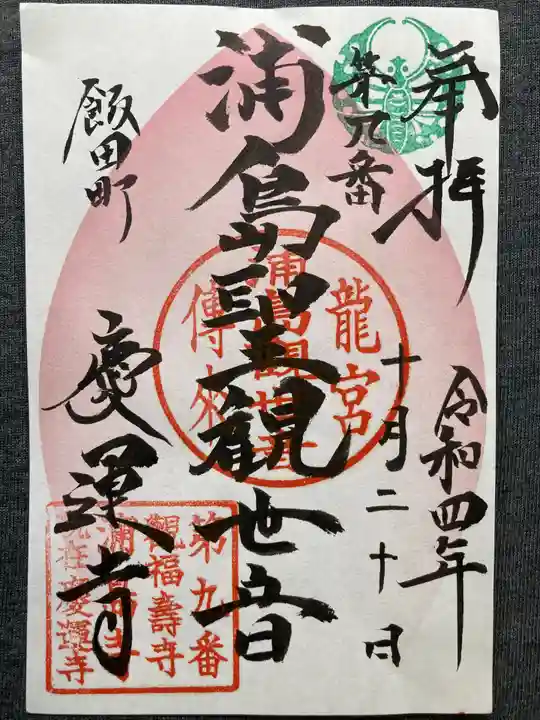 奉拝
令和四年
十月二十日
第九番
浦島聖観世音
飯田町
慶運寺
龍宮
浦島観世音
傳來
第九番
観福壽寺
浦島寺
現在慶運寺